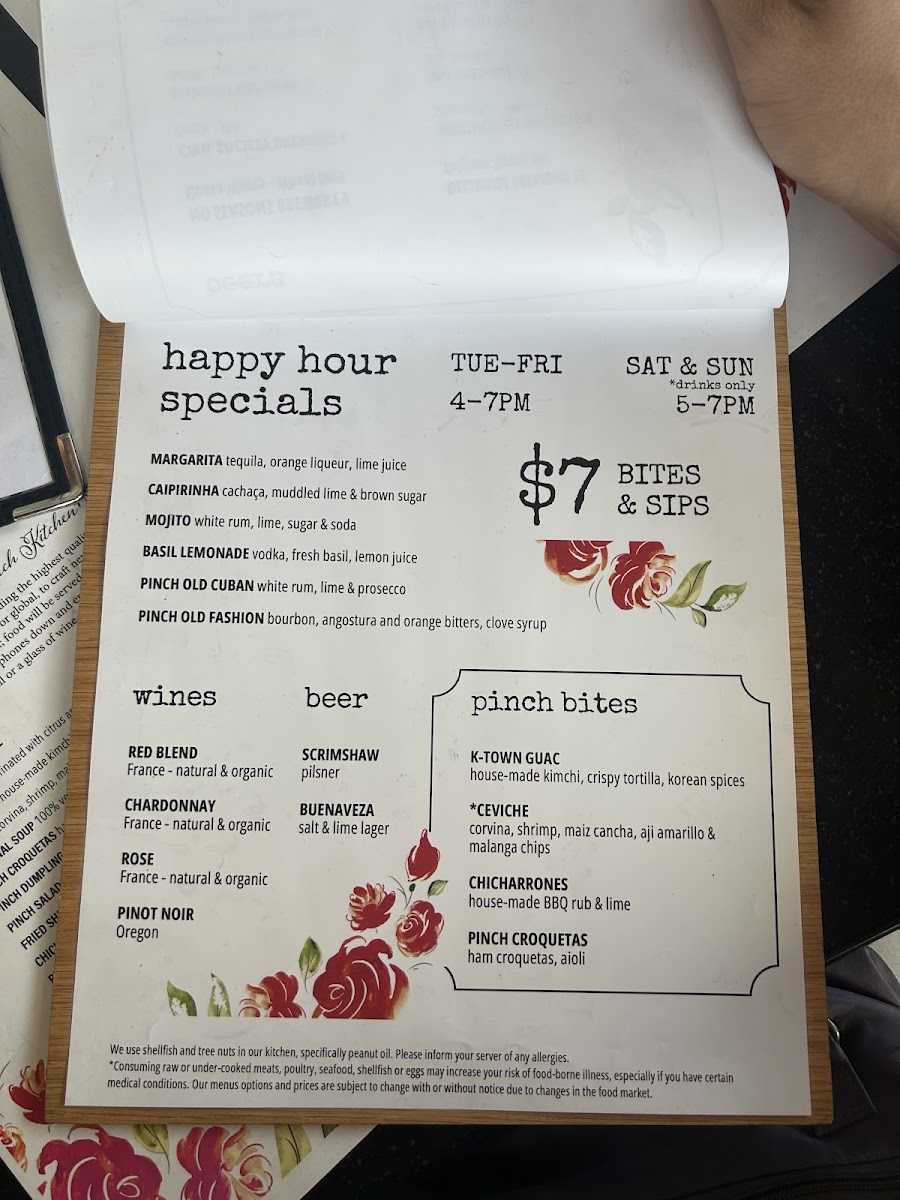 happy hour
specials
TUE-FRI
4-7PM
SAT & SUN
*drinks only
5-7PM
$7 BITES
& SIPS
MARGARITA tequila, orange liqueur, lime juice
CAIPIRINHA cachaça, muddled lime & brown sugar
MOJITO white rum, lime, sugar & soda
BASIL LEMONADE vodka, fresh basil, lemon juice
PINCH OLD CUBAN white rum, lime & prosecco
PINCH OLD FASHION bourbon, angostura and orange bitters, clove syrup
wines
RED BLEND
France - natural & organic
CHARDONNAY
France - natural & organic
ROSE
France - natural & organic
PINOT NOIR
Oregon
beer
SCRIMSHAW
pilsner
BUENAVEZA
salt & lime lager
pinch bites
K-TOWN GUAC
house-made kimchi, crispy tortilla, korean spices
*CEVICHE
corvina, shrimp, maiz cancha, aji amarillo &
malanga chips
CHICHARRONES
house-made BBQ rub & lime
PINCH CROQUETAS
ham croquetas, aioli
We use shellfish and tree nuts in our kitchen, specifically peanut oil. Please inform your server of any allergies.
*Consuming raw or under-cooked meats, poultry, seafood, shellfish or eggs may increase your risk of food-borne illness, especially if you have certain
medical conditions. Our menus options and prices are subject to change with or without notice due to changes in the food market.
Kitchen
the highest
or global, to craft
food will be served
phones down and
or a glass of wine
with citrus
house-made
corvina, shrimp,
SOUP 100%
CROQUETAS
PINCH DUMPLING
PINCH SALAD
FRIED